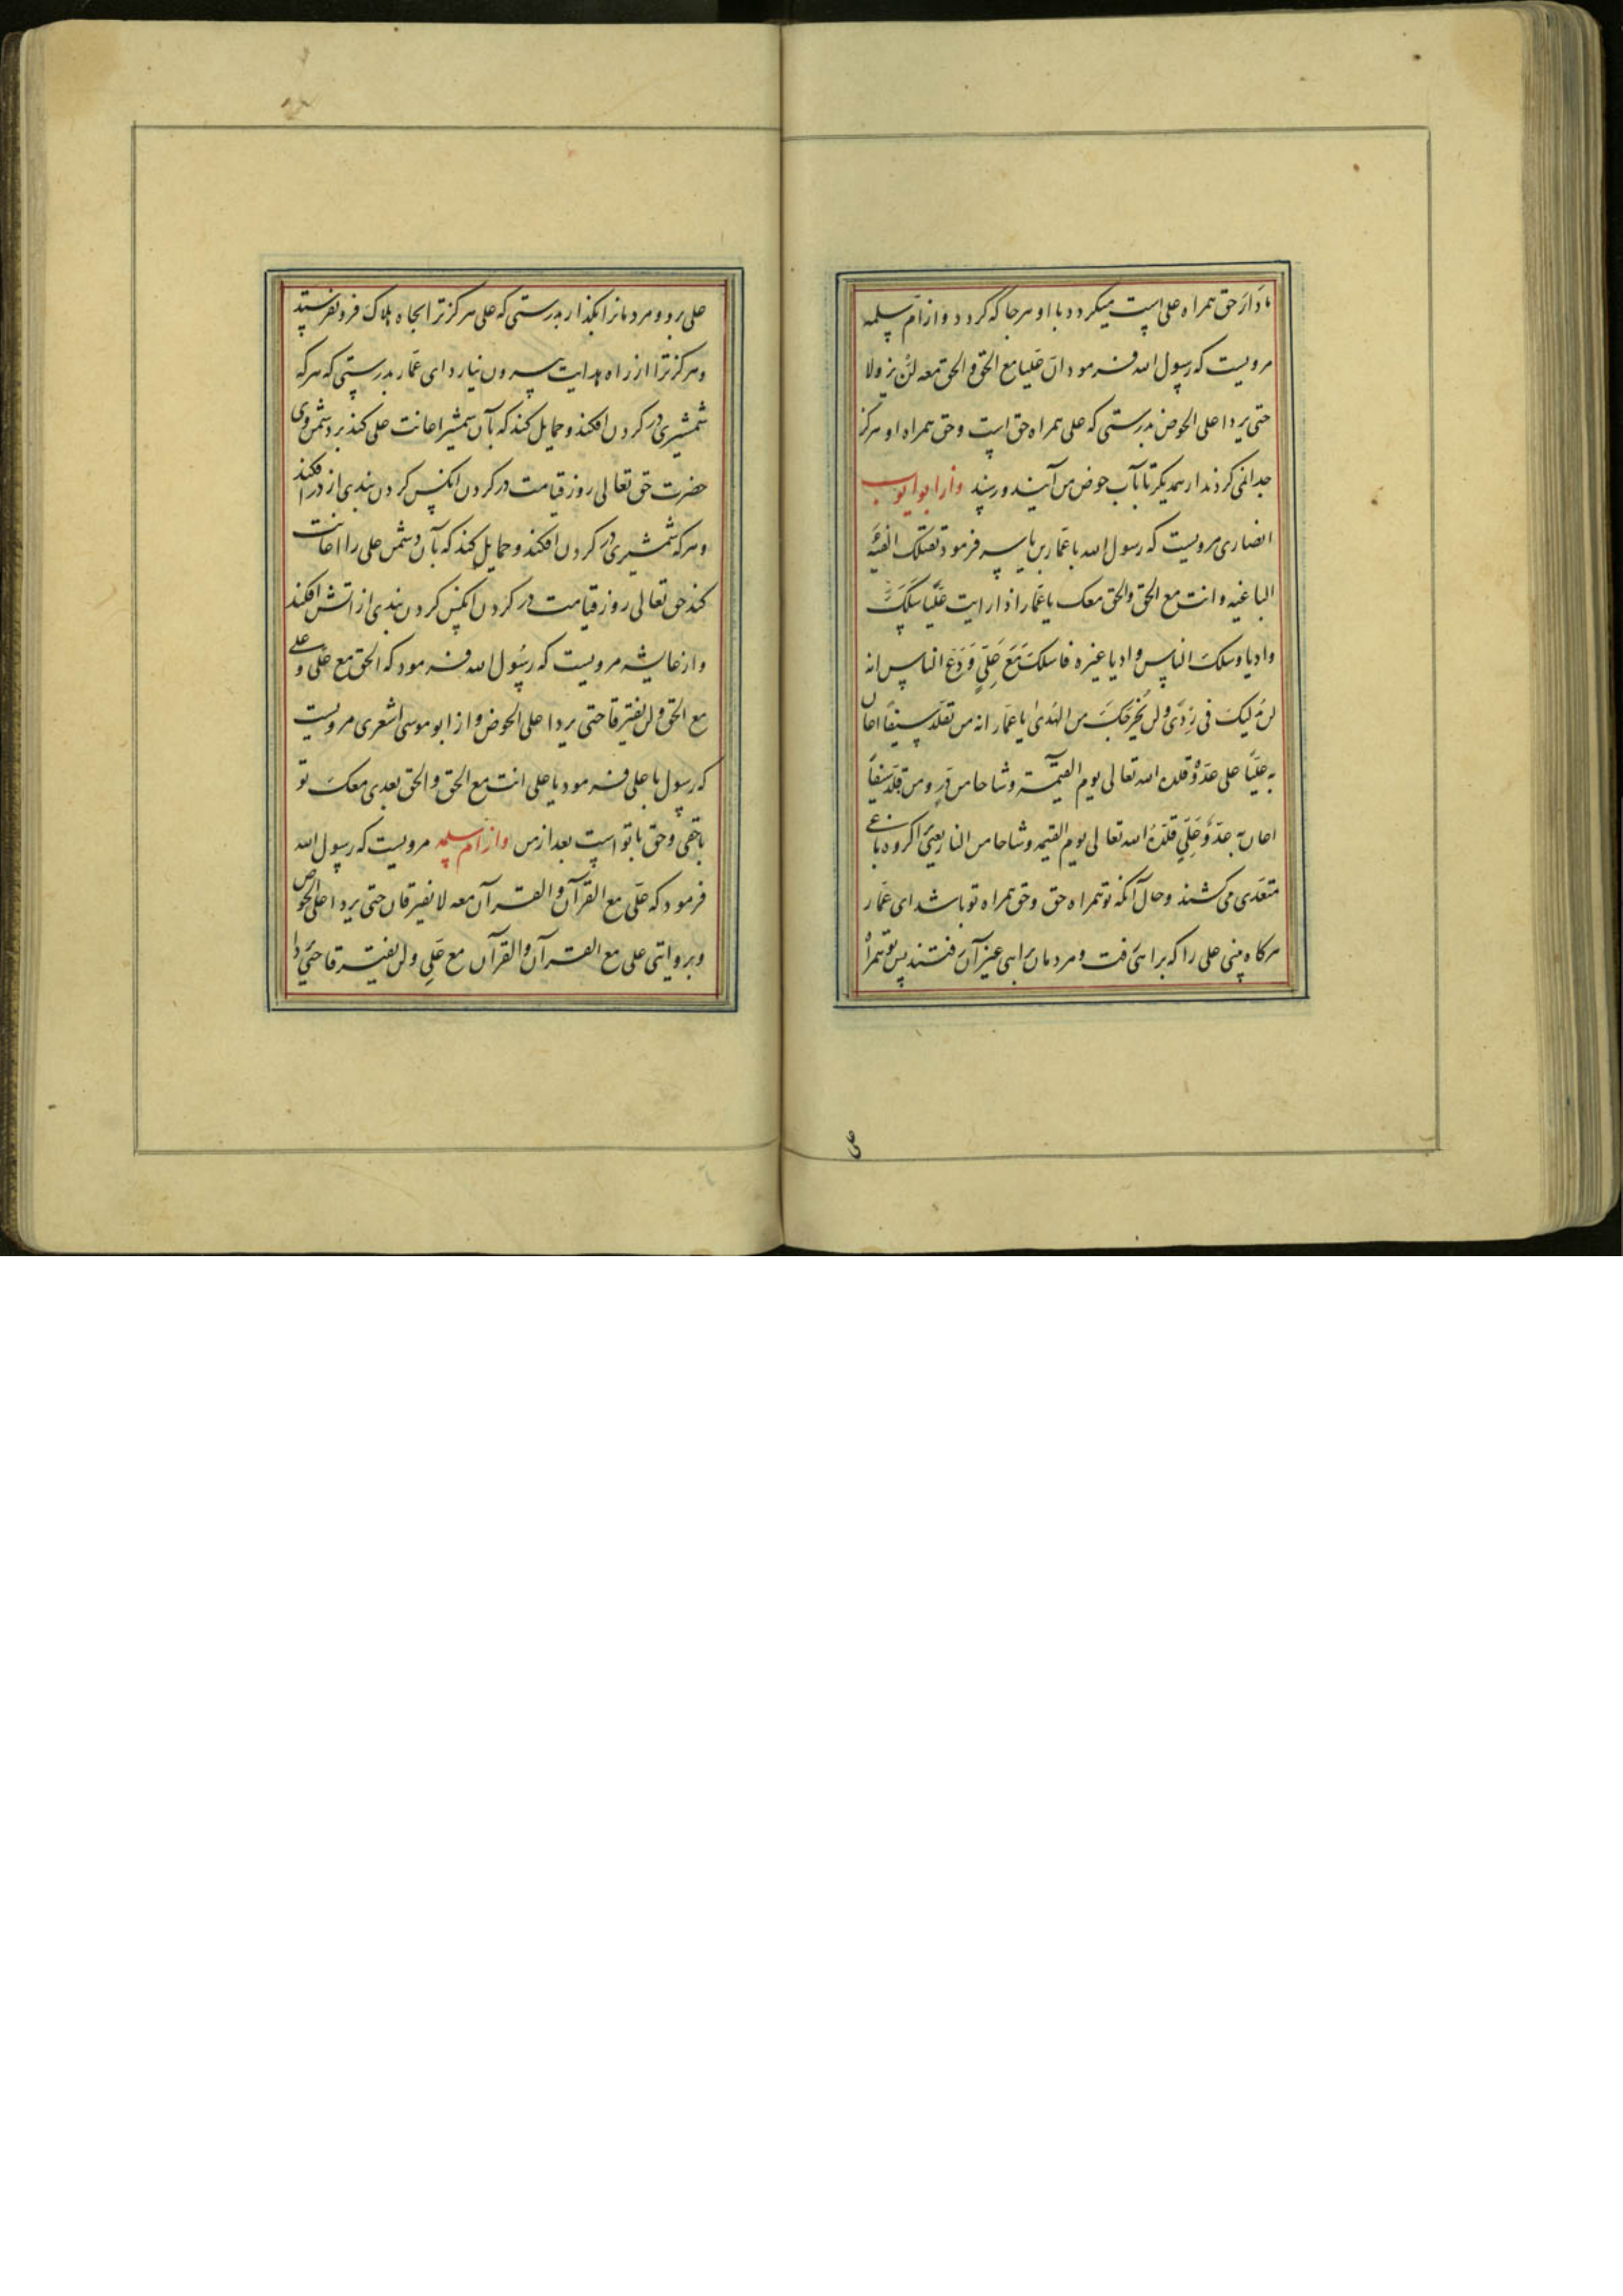 مادار حق همراه علی است میکردد با او هر جا که کردد و از ام سلمه
مرویست که رسول الله فرمود ان علیا مع الحق و الحق معه لن یزولا
حتی یردا علی الحوض بدرستی که علی همراه حق است و حق همراه او هرکز
جدا نمی کردند از همدیکر تا بآب حوض من آیند و رسند و از ابو ایوب
انصاری مرویست که رسول الله با عمار بن یاسر فرمود تقتلک الفئة
الباغیه و انت مع الحق و الحق معک یا عمار اذا رایت علیا سلک
وادیا و سلک الناس وادیا غیره فاسلک مع علی و دع الناس انه
لن یدلیک فی ردی و لن یخرجک من الهدی یا عمار انه من تقلد سیفا اعان
به علیا علی عدوه قلده الله تعالی یوم القیمة وشاحا من در و من تقلد سیفا
اعان به عدو علی قلده الله تعالی یوم القیمه وشاحا من النار یعنی ترا کروه باغی
متعدی می کشند و حال آنکه تو همراه حق و حق همراه تو باشد ای عمار
هرکاه بینی علی را که براهی رفت و مردمان براهی غیر آن رفتند پس تو همراه
علی برو و مردمانرا بکذار بدرستی که علی هرکز ترا بجاه هلاک فرو نفرستد
و هرکز ترا از راه هدایت بیرون نیارد ای عمار بدرستی که هر که
شمشیری در کردن افکند و حمایل کند که بآن شمشیر اعانت علی کند بر دشمن وی
حضرت حق تعالی روز قیامت در کردن انکس کردن بندی از در افکند
و هر که شمشیری در کردن افکند و حمایل کند که بآن دشمن علی را اعانت
کند حق تعالی روز قیامت در کردن انکس کردن بندی از اتش افکند
و از عایشه مرویست که رسول الله فرمود که الحق مع علی و علی
مع الحق و لن یفترقا حتی یردا علی الحوض و از ابو موسی اشعری مرویست
که رسول با علی فرمود یا علی انت مع الحق و الحق بعدی معک تو
باحقی و حق با تو است بعد از من و از ام سلمه مرویست که رسول الله
فرمود که علی مع القرآن و القرآن معه لا یفترقان حتی یردا علی الحوض
و بروایتی علی مع القرآن و القرآن مع علی و لن یفترقا حتی یردا